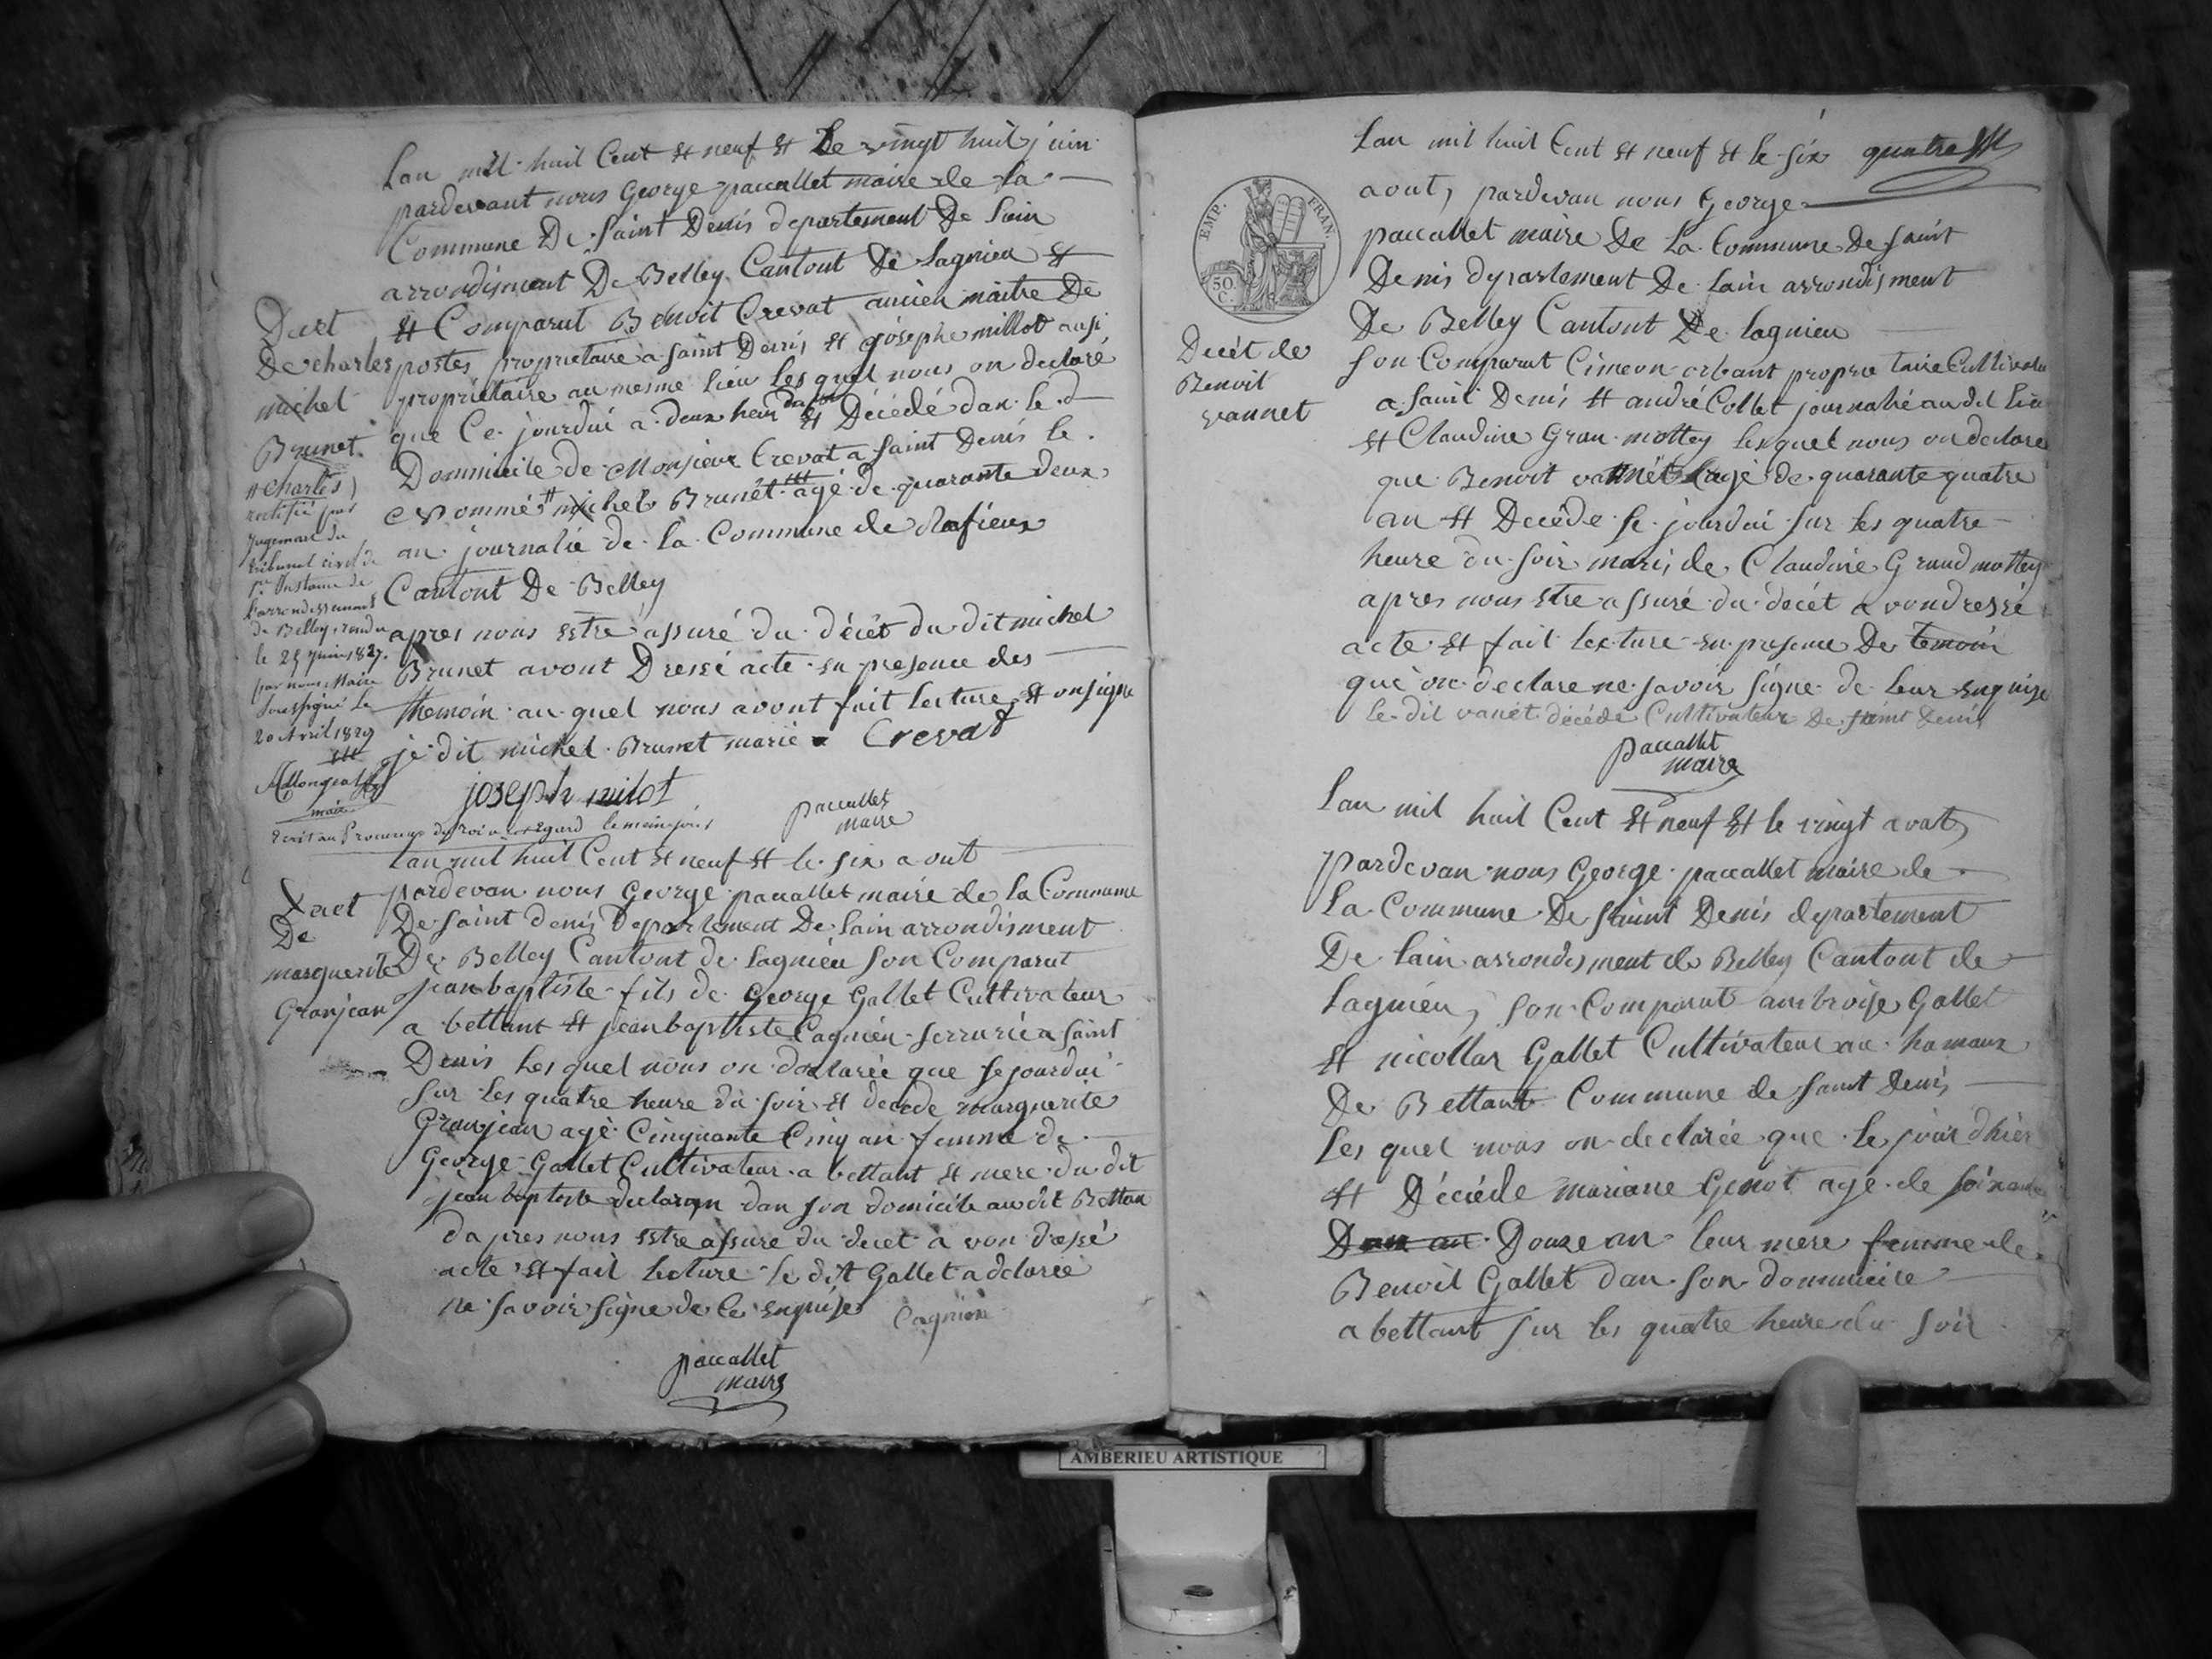 Lan mil huil Cent & neuf & Le vingt huit juin
pardevant nous George paccallet maire de la
Commune De Saint Denis departement De Lain
arrondisment De Belley Cantont De Lagnieu &
& Comparut Benoit Crevat ancien maitre De
postes, proprietaire a Saint Denis & joseph millot ausi
proprietaire au mesme lieu Les quel nous on declaré
que Ce jourdui a deux heur & Décédé dan le
Dommicile de Monsieur Crevat a Saint Denis le
Nommé michel Brunét agé de quarante deux
an journalié de la Commune de
Cantont De Belley
apres nous estre assuré du décèt du dit michel
Brunet avont Dressé acte en presence des
themoin au quel nous avont fait lecture & on signe
je dit michel Brunet marié Crevat
joseph milot
paccallet
maire
Decet
De charles
michel
Brunet
charles
rectifié par
jugement du
tribunal civil de
1re Instance de
l'arrondissement
de Belley, rendu
le 25 juin 1827.
par nous Maire
soussigné le
20 Avril 1829
maire
Ecrit au Procureur du Roi a cet Egard le meme jour
Lan mil huil Cent & neuf & le six a out
pardevan nous George paccallet maire de la Commune
De Saint denis Departement De Lain arrondisment
De Belley Cantont de Lagnieu Son Comparut
jean baptiste fils de George Gallet Cultivateur
a bettant & jean baptiste Cagnien serrurié a Saint
Denis Les quel nous on déclarée que se jourdui
sur les quatre heure du soir & decede marguerite
Granjean agé Cinquante Cinq an femme de
George Gallet Cultivateur a bettant & mere du dit
jean baptiste declaran dan son domicile au dit Bettan
dapres nous estre assure du decet a von dressé
acte & fait lecture le dit Gallet a déclarée
ne savoir signe de ce enquise
paccallet
maire
De
marguerite
Granjean
quatre
Lan mil huil Cent & neuf & le six
aout, pardevan nous George
paccallet maire De La Commune De Saint
Denis departement De Lain arrondisment
De Belley Cantont De Lagnieu
son Comparut Cimeon orbant proprie taire Cultivateur
a Saint Denis & andré Collet journalié au dit Lieu
& Claudine Gran mottey lesquel nous on declare
que Benoit vannét agé de quarante quatre
an & Decéde se jourdui sur les quatre
heure du soir mari de Claudine Grand mottey
apres nous estre assuré du decét a vondressé
acte & fait lecture en presence De temoin
qui on declare ne savoir signe de leur enquise
le dit vanét décéde Cultivateur De Saint Denis
paccallet
maire
EMP. FRAN.
50.
C.
Decét de
Benoit
vannet
Lan mil huil Cent & neuf & le vingt avout,
pardevan nous George paccallet maire de
La Commune De Saint Denis departement
De Lain arrondisment de Belley Cantont de
Lagnieu, son Comparut ambroise Gallet
& nicollas Gallet Cultivateur au hamaux
De Bettant Commune de Saint Denis
Les quel nous on declarée que le jour dhier
& Décéde mariane Genot agé de soixante
Douze an leur mere femme de
Benoit Gallet dan son dommicile
a bettant sur les quatre heure du soir
AMBERIEU ARTISTIQUE